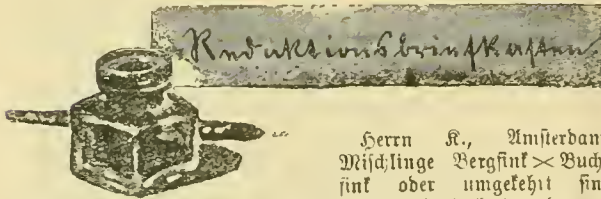 Redaktionsbriefkasten.
Herrn K., Amsterdam
Mischlinge Bergfink × Buch-
fink oder umgekehrt sin